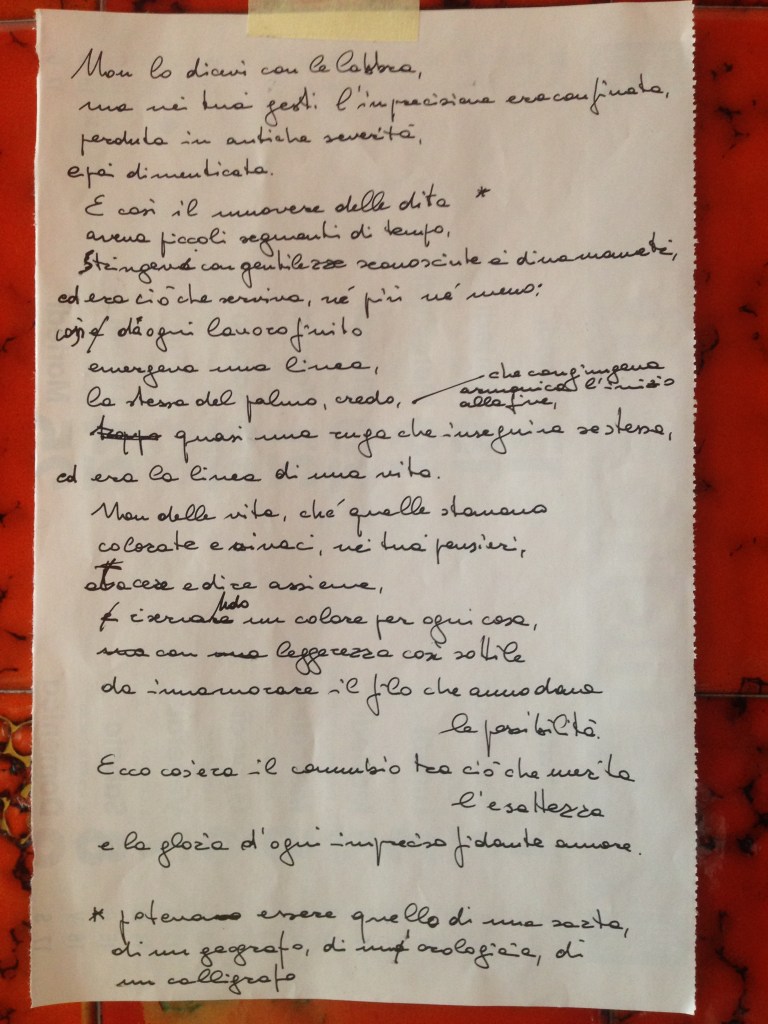 Non lo dicevi con le labbra,
ma nei tuoi gesti l'imprecisione era confinata,
perduta in antiche severità,
e poi dimenticata.
E così il muovere delle dita *
aveva piccoli segmenti di tempo,
stringevi con gentilezze sconosciute ai dinamometri,
ed era ciò che serviva, né più né meno:
così da ogni lavoro finito
emergeva una linea,
la stessa del palmo, credo,
che congiungeva
armonica l'inizio
alla fine,
troppo quasi una ruga che inseguiva se stessa,
ed era la linea di una vita.
Non delle vita, ché quelle stavano
colorate e vivaci, nei tuoi pensieri,
tacere e dire assieme,
riservando un colore per ogni cosa,
ma con una leggerezza così sottile
da innamorare il filo che annodava
le possibilità.
Ecco cos'era il connubio tra ciò che merita
l'esattezza
e la gloria d'ogni impreciso fidante amore.
* poteva essere quello di una sarta,
di un geografo, di un orologiaia, di
un calligrafo